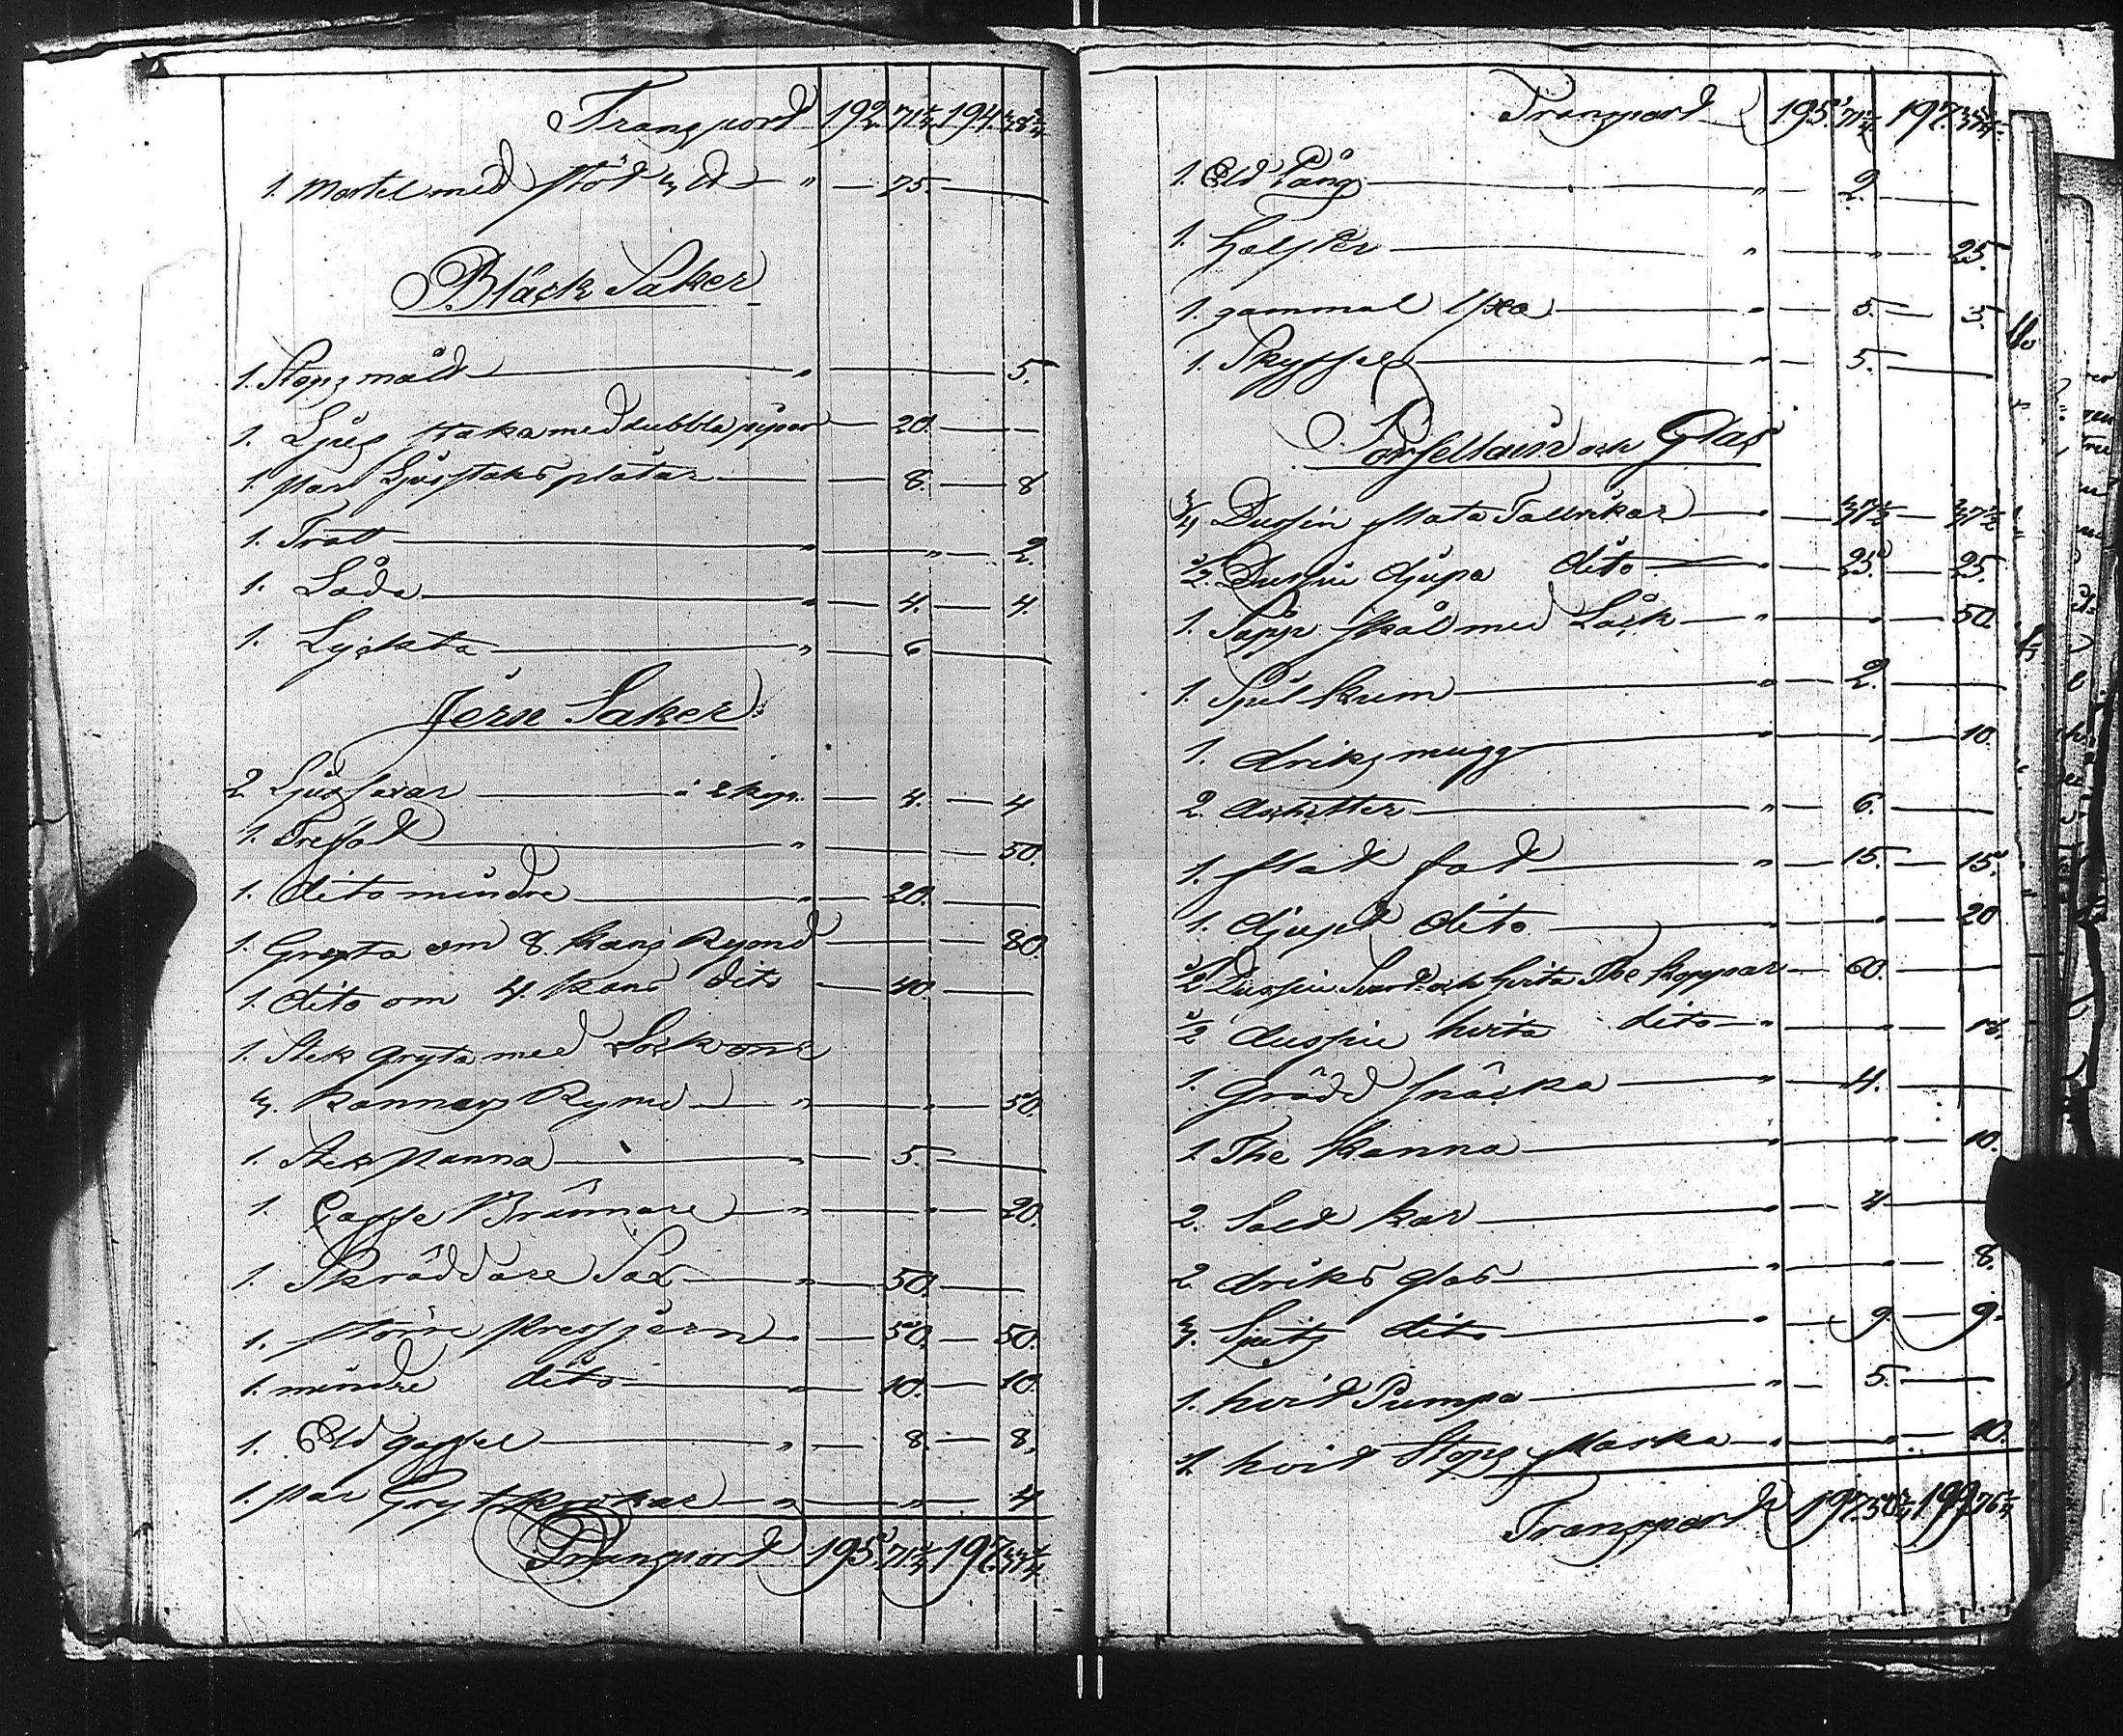 Transport 192. 71 1/4. 194. 38 3/4
1. Mortel med stöt " 75.
Bläck Saker
1. Stops måld " 5.
1. Ljus staka med dubbla pipor 20.
1. par Ljusstaks plåtar 8. 8
1. Tratt " " 2.
1. Låda " 4. 4.
1. Lyckta " 6
Jern Saker
2 Ljus saxar à 2 kop. 4. 4
1. Trefod " 50.
1. dito mindre " 20.
1. Gryta om 8. kans Rymd 80.
1. dito om 4. kans dito 40.
1. Stek gryta med Låck
3. kannars Rymd " " 50
1. Stek panna " 5.
1. Caffe Brännare " " 20.
1. Skräddare Sax " 50
1. större pressjern " 50. 50.
1. mindre dito " 10. 10.
1. Eld gaffel " 8. 8,
1. par Grytkrokar " " 4
Transport 195. 71 1/4 197. 37 1/4
Transport 195. 71 1/4. 197. 37 1/4
1. Eld Tång " 2.
1. halster " " 25.
1. gammal Yxa " 5. 5.
1. Skyffel " 5.
Porsellain och Glas
3/4 Dussin flata Tallrikar " 37 1/2 37 1/2
1/2 Dussin djupa dito 25. 25.
1. Såpp skål med Låck " " 50
1. Spil kum " 2.
1. driks mugg " " 10.
2. asietter " 6.
1. flat fat " 15. 15.
1. djupt dito " " 20
1/2 Dussin Svart och hvita The koppar 60.
1/2 dussin hvita dito "
1. Grädd snäcka " 4.
1. The kanna " " 10.
2. Salt kar " 4
2. driks glas " " 8.
3. Spits dito " 9. 9.
1. hvit Pumpa " 5.
1. hvit Stops flaska " " 10.
Transport 197. 199. 76 1/4